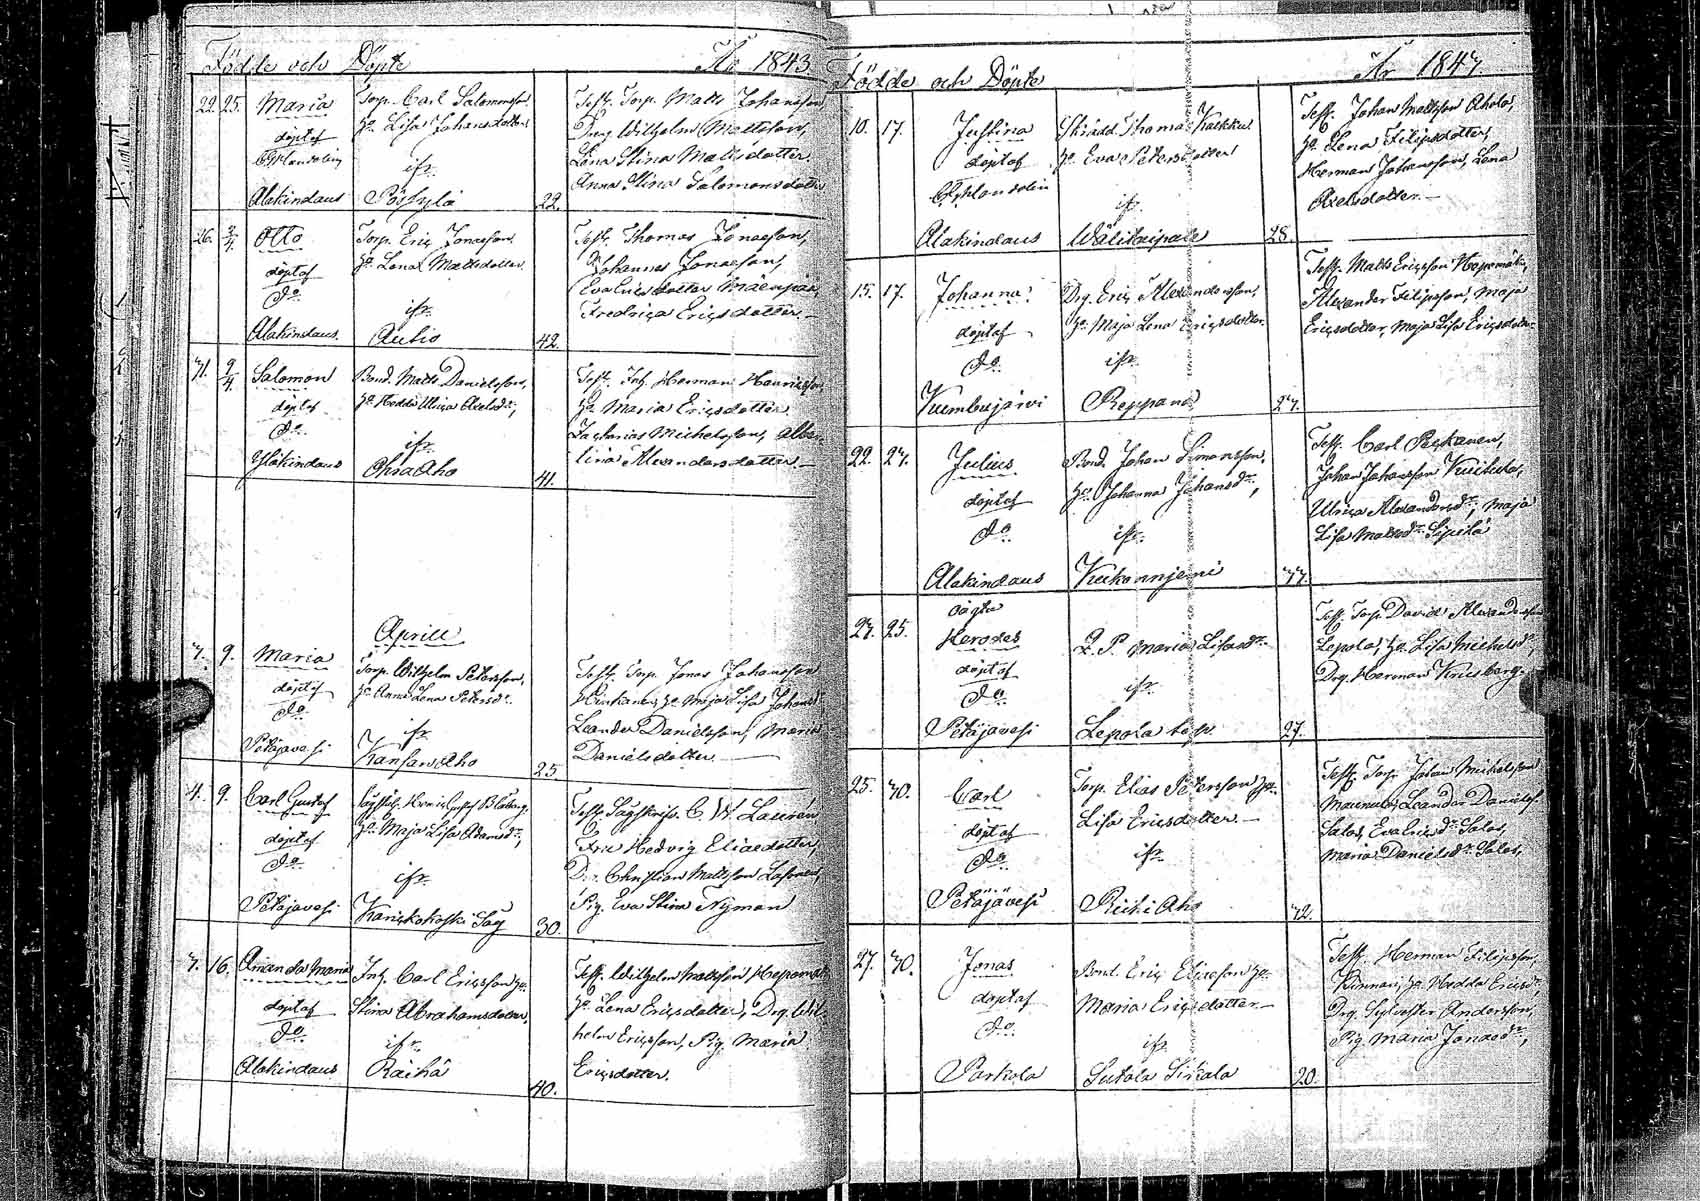 Födde och Döpte År 1843
22. 25. Maria
döpt af
Alakindaus
Torp. Carl Salomonsson
Ha Lisa Johansdotter
ifr.
Pösfylä
22.
Test. Torp. Matts Johansson,
Dräng Wilhelm Mattsson,
Lena Stina Mattsdotter
Anna Stina Salomonsdotter
26. 2/4. Otto
döpt af
do
Alakindaus.
Torp. Eric Jonasson
Ha Lena Mattsdotter
ifr.
Autio
42.
Test. Thomas Jonasson,
Johannes Jonasson,
Eva Ericsdotter Mäenpää,
Fredrica Ericsdotter
31. 9/4. Salomon
döpt af
do
Yläkindaus
Bond. Matts Danielsson,
Ha Hedda Ulrica Axelsdr,
ifr
Ohra Aho
41.
Test. Inh. Herman Henricsson
Ha Maria Ericsdotter
Zacharias Michelsson, Alber-
tina Alexandersdotter
Aprill
3. 9. Maria
döpt af
do
Petäjävesi
Torp. Wilhelm Petersson,
Ha Anna Lena Petersdr.
ifr.
Kansan Aho
25
Test. Torp. Jonas Johansson
Ha Maja Lisa Johansdr
Leander Danielsson, Maria
Danielsdotter
4. 9. Carl Gustaf
döpt af
do
Petäjävesi
Ha Maja Lisa Adamsdr,
ifr.
Såg
30.
Test. Sågskrifv. C. W. Laurén
Fru Hedvig Eliaedotter,
Dr. Christian Mattsson
Pig. Eva Stina Nyman
7. 16. Amanda Maria
döpt af
do
Alakindaus
Inh. Carl Ericsson Ha
Stina Abrahamsdotter,
ifr.
Raiha
40.
Test. Wilhelm Mattsson
Ha Lena Ericsdotter, Drg Wil-
helm Ericsson, Pig. Maria
Ericsdotter.
Födde och Döpte År 1843.
10. 17. Justina
döpt af
Alakindaus
Skrädd. Thomas Kaikku
Ha Eva Petersdotter
ifr
Wälitaipale
28.
Test. Johan Mattsson Ahola,
Ha Lena Filipsdotter,
Herman Johansson, Lena
Axelsdotter
15. 17. Johanna
döpt af
do
Kuembujärvi
Drg. Eric Alexandersson,
Ha Maja Lena Ericsdotter
ifr
Reppana
23.
Test. Matts Ericsson Hepomäki,
Alexander Filipsson, Maja
Ericsdotter, Maja Lisa Ericsdotter
22. 23. Julius
döpt af
do
Alakindaus
Bond. Johan Simonsson,
Ha Johanna Johansdr,
ifr.
Kukonnjemi
33.
Test. Carl Peckanen,
Johan Johansson
Ulrica Alexandersdr, Maja
Lisa Mattsdr Sipilä
23. 25. oägta
Herodes
döpt af
do
Petäjävesi
Q. P. Maria Lisasdr
ifr
Lepola
27.
Test. Torp. David Alexandersson
Lepola, Ha Lisa Michelsdr,
Drg. Herman
25. 30. Carl
döpt af
do
Petäjävesi
Torp. Elias Petersson Ha
Lisa Ericsdotter
ifr
Riihi Aho
32.
Test. Torp. Johan Michelsson
Leander Danielsson
Salos, Eva Ericsdr Salos,
Maria Danielsdr Salos,
27. 30. Jonas
döpt af
do
Parkola
Bond. Eric Eliaesson Ha
Maria Ericsdotter
ifr
Sutala Sikala
20.
Test. Herman Filipsson,
Kinnari, Ha Hedda Ericsdr,
Drg. Sylvester Andersson,
Pig. Maria Jonasdr,